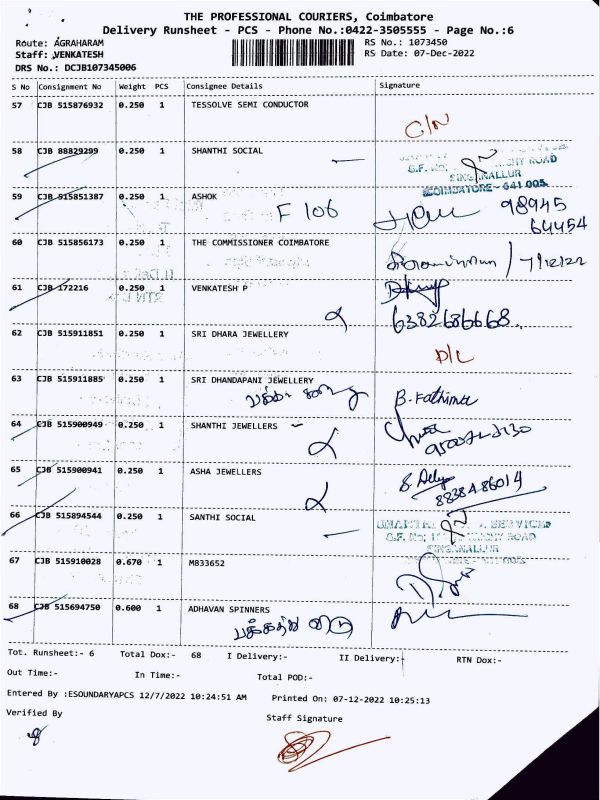 THE PROFESSIONAL COURIERS, Coimbatore
Delivery Runsheet - PCS - Phone No.:0422-3505555 - Page No.:6
Route: AGRAHARAM RS No.: 1073450
Staff: VENKATESH RS Date: 07-Dec-2022
DRS No.: DCJB107345006
S No Consignment No Weight PCS Consignee Details Signature
57 CJB 515876932 0.250 1 TESSOLVE SEMI CONDUCTOR
C/N
58 CJB 88829299 0.250 1 SHANTHI SOCIAL
ROAD
SINGANALLUR
COIMBATORE - 641 005.
59 CJB 515851387 0.250 1 ASHOK
F 106 98945
64454
60 CJB 515856173 0.250 1 THE COMMISSIONER COIMBATORE
7/12/22
61 CJB 172216 0.250 1 VENKATESH P
6382686668
62 CJB 515911851 0.250 1 SRI DHARA JEWELLERY
D/L
63 CJB 515911885 0.250 1 SRI DHANDAPANI JEWELLERY
B. Fathima
64 CJB 515900949 0.250 1 SHANTHI JEWELLERS
65 CJB 515900941 0.250 1 ASHA JEWELLERS
8838486014
66 CJB 515894544 0.250 1 SANTHI SOCIAL
SERVICES
ROAD
SINGANALLUR
67 CJB 515910028 0.670 1 M833652
68 CJB 515694750 0.600 1 ADHAVAN SPINNERS
பக்கத்து வீடு
Tot. Runsheet:- 6 Total Dox:- 68 I Delivery:- II Delivery:- RTN Dox:-
Out Time:- In Time:- Total POD:-
Entered By :ESOUNDARYAPCS 12/7/2022 10:24:51 AM Printed On: 07-12-2022 10:25:13
Verified By Staff Signature